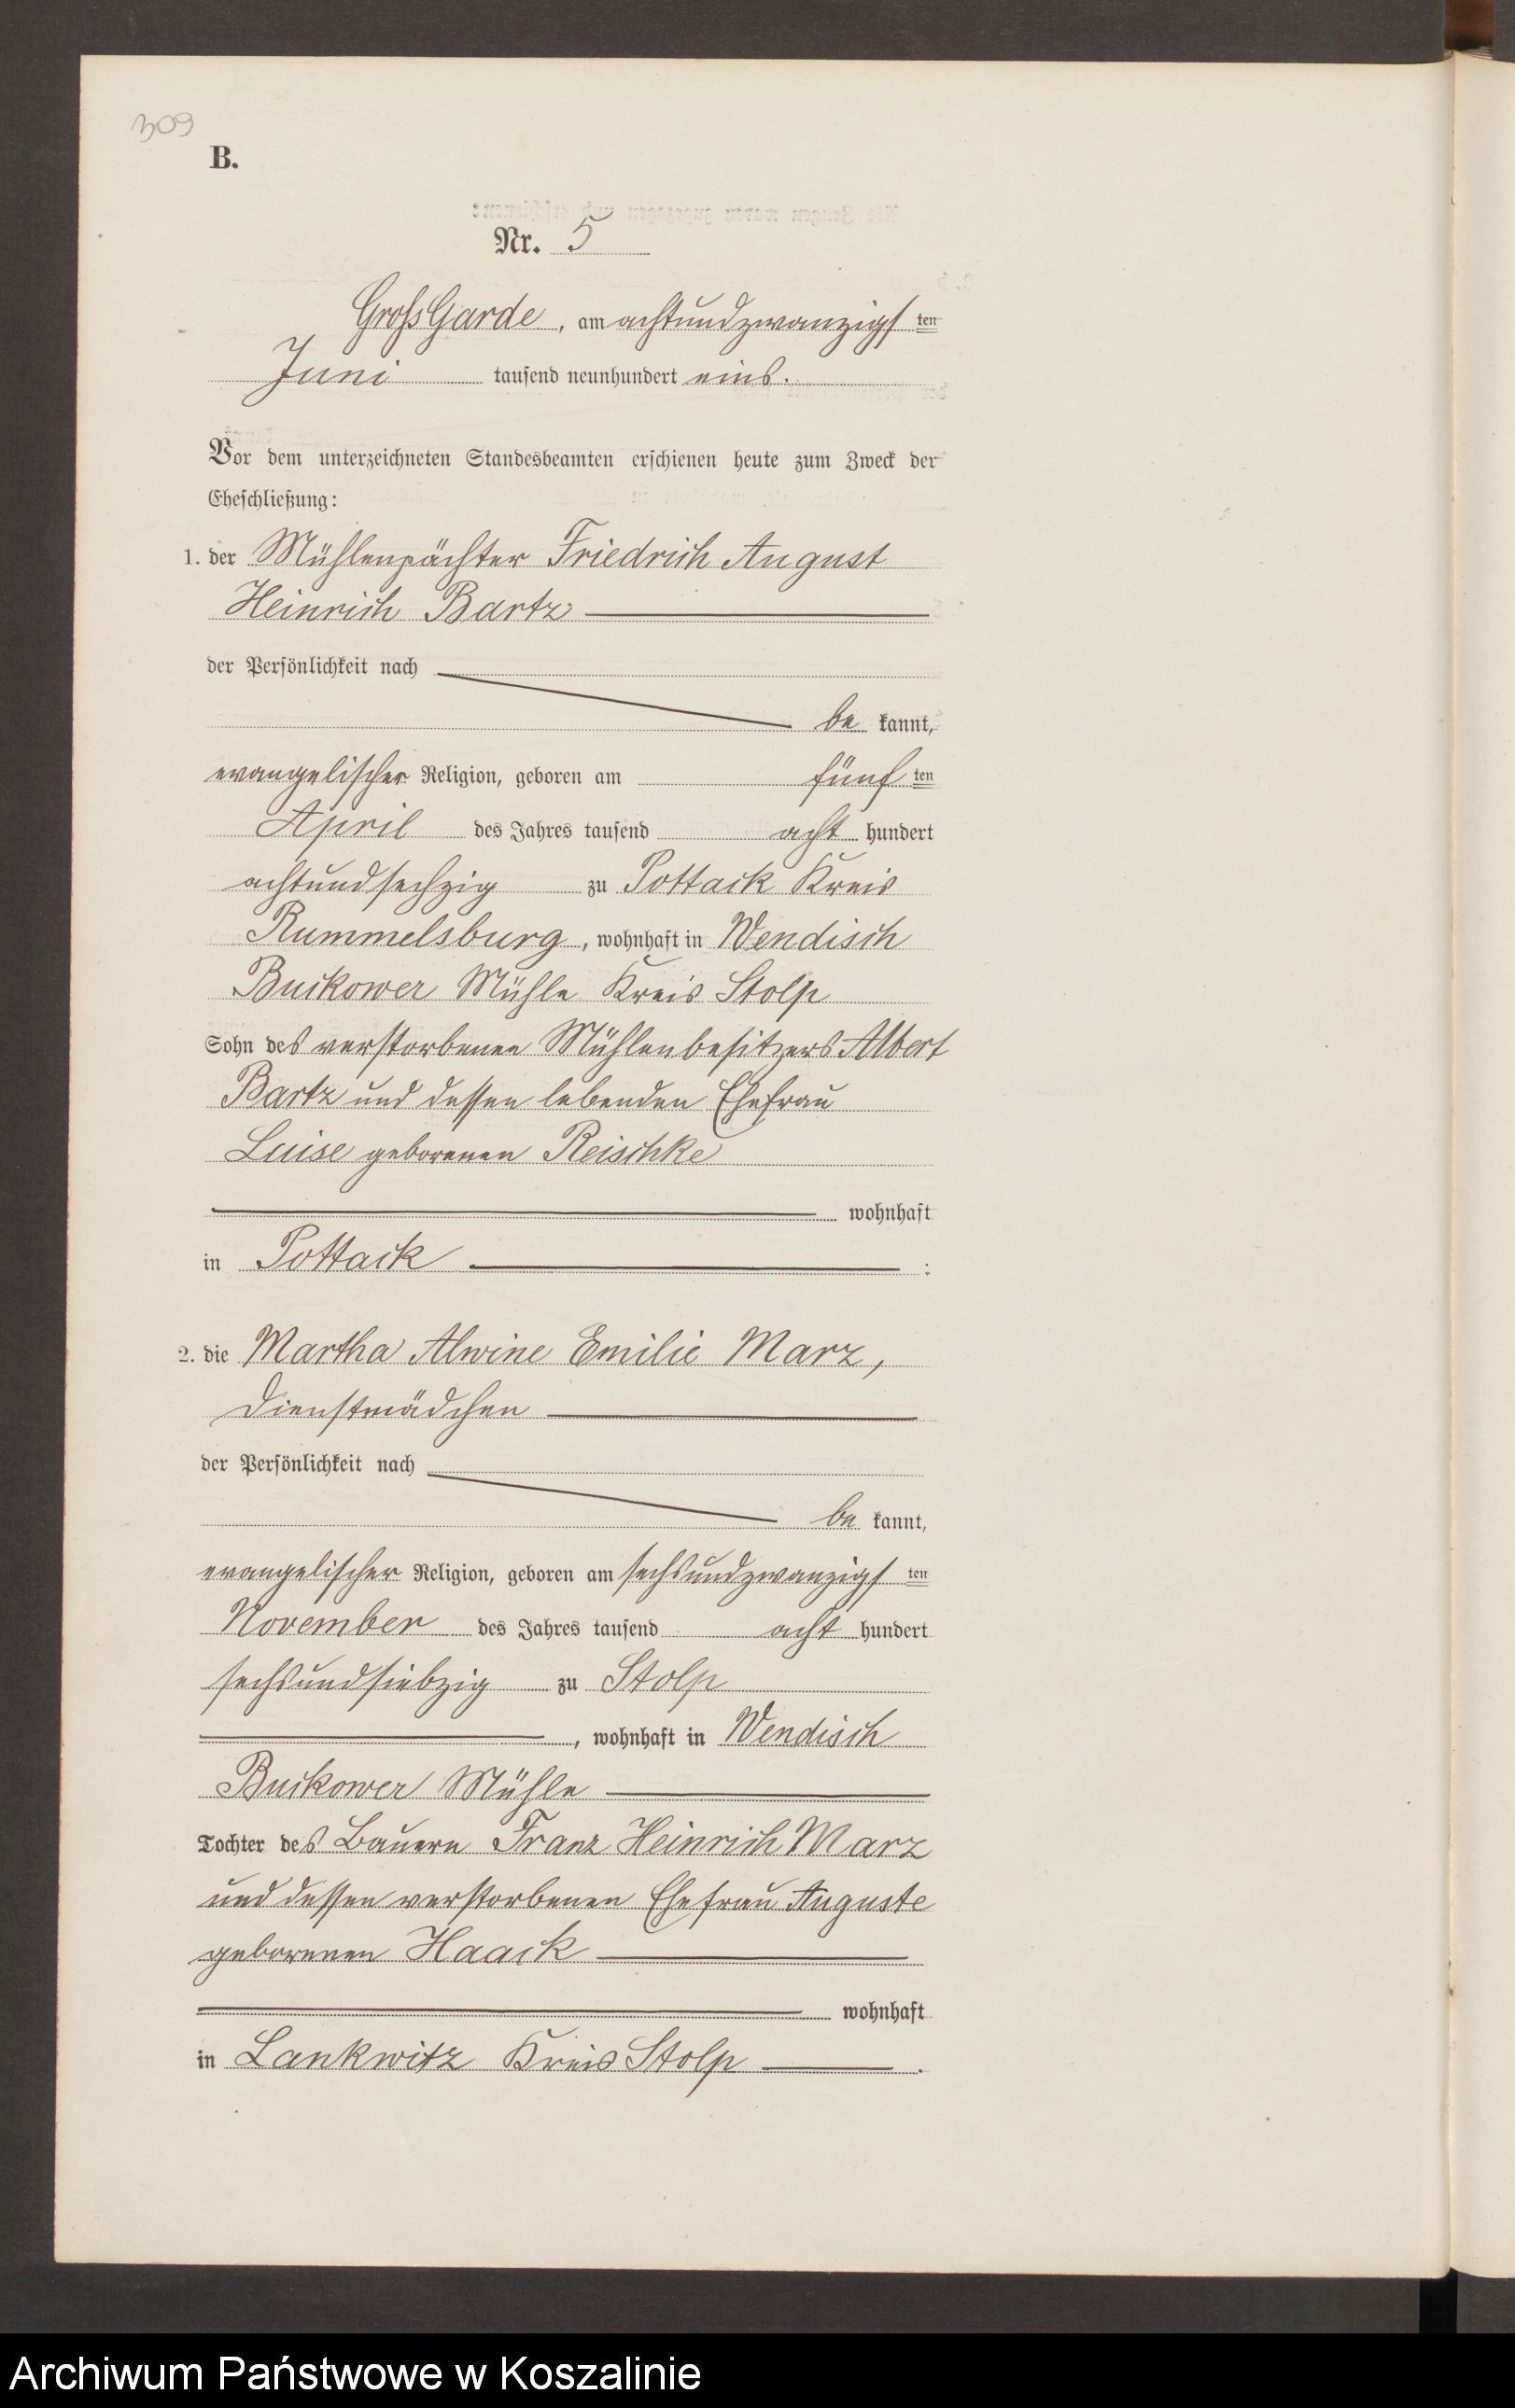 309
B.
Nr. 5
Gross Garde, am achtundzwanzigsten
Juni tausend neunhundert eins.
Vor dem unterzeichneten Standesbeamten erschienen heute zum Zweck der
Eheschließung:
1. der Mühlenpächter Friedrich August
Heinrich Bartz
der Persönlichkeit nach
be kannt,
evangelischer Religion, geboren am fünften
April des Jahres tausend acht hundert
achtundsechzig zu Pottack Kreis
Rummelsburg, wohnhaft in Wendisch
Buckower Mühle Kreis Stolp
Sohn des verstorbenen Mühlenbesitzers Albert
Bartz und dessen lebenden Ehefrau
Luise geborenen Reischke
wohnhaft
in Pottack :
2. die Martha Alwine Emilie Marz,
Dienstmädchen
der Persönlichkeit nach
be kannt,
evangelischer Religion, geboren am sechsundzwanzigsten
November des Jahres tausend acht hundert
sechsundsiebzig zu Stolp
, wohnhaft in Wendisch
Buckower Mühle
Tochter des Bauern Franz Heinrich Marz
und dessen verstorbenen Ehefrau Auguste
geborenen Haack
wohnhaft
in Lankwitz Kreis Stolp .
Archiwum Państwowe w Koszalinie